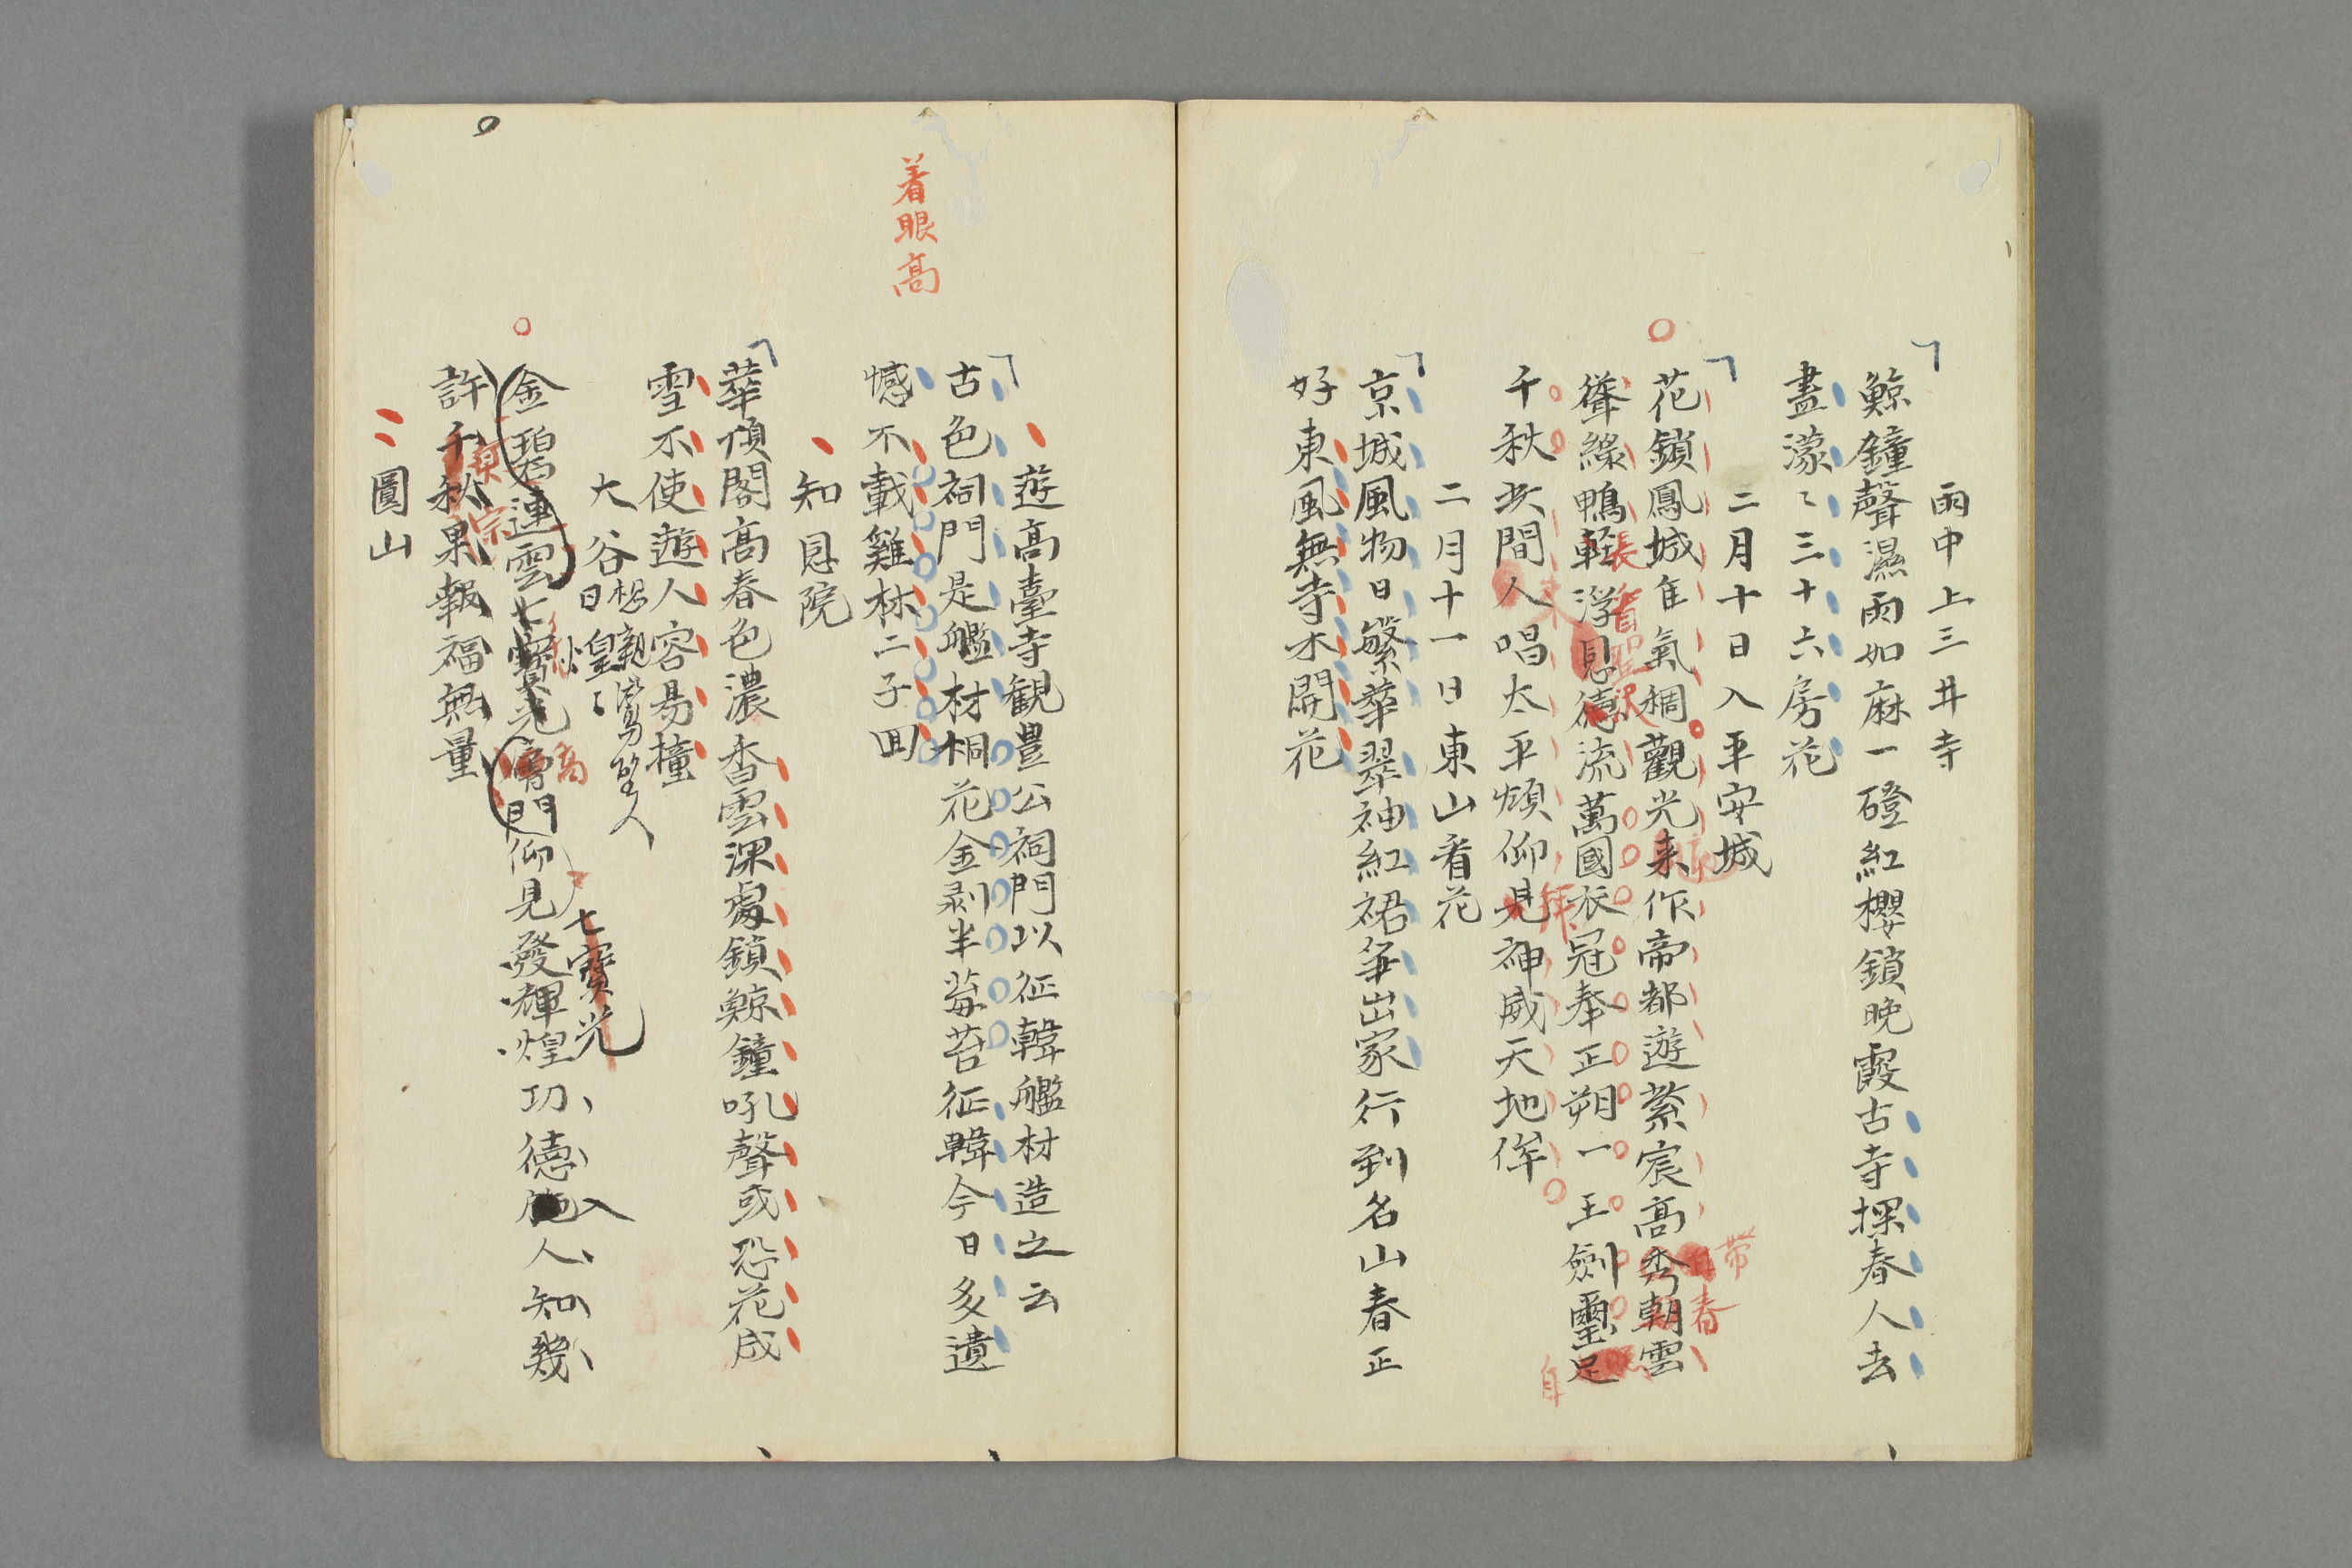 雨中上三井寺
鯨鐘聲濕雨如麻一磴紅櫻鎖晚霞古寺探春人去
盡濛〻三十六房花
二月十日入平安城
花鎖鳳城隹氣稠觀光来作帝都遊紫宸高秀朝雲
帶
春
聳綠鴨軽浮恩德流萬國衣冠奉正朔一王劍璽足
長
自
千秋此間人唱太平頌仰見神威天地侔
二月十一日東山看花
京城風物日繁華翠袖紅裙爭出家行到名山春正
好東風無寺不開花
遊高臺寺観豊公祠門以征韓艦材造之云
着眼高
古色祠門是艦材桐花金剥半莓苔征韓今日多遺
憾不載雞林二子回
知恩院
華頂閣高春色濃杏雲深處鎖鯨鐘吼聲或恐花成
雪不使遊人容易撞
大谷
金碧連雲七寶光門仰見發輝煌功德人知幾
七寶光
高
許千秋果報福無量
東
宗
圓山